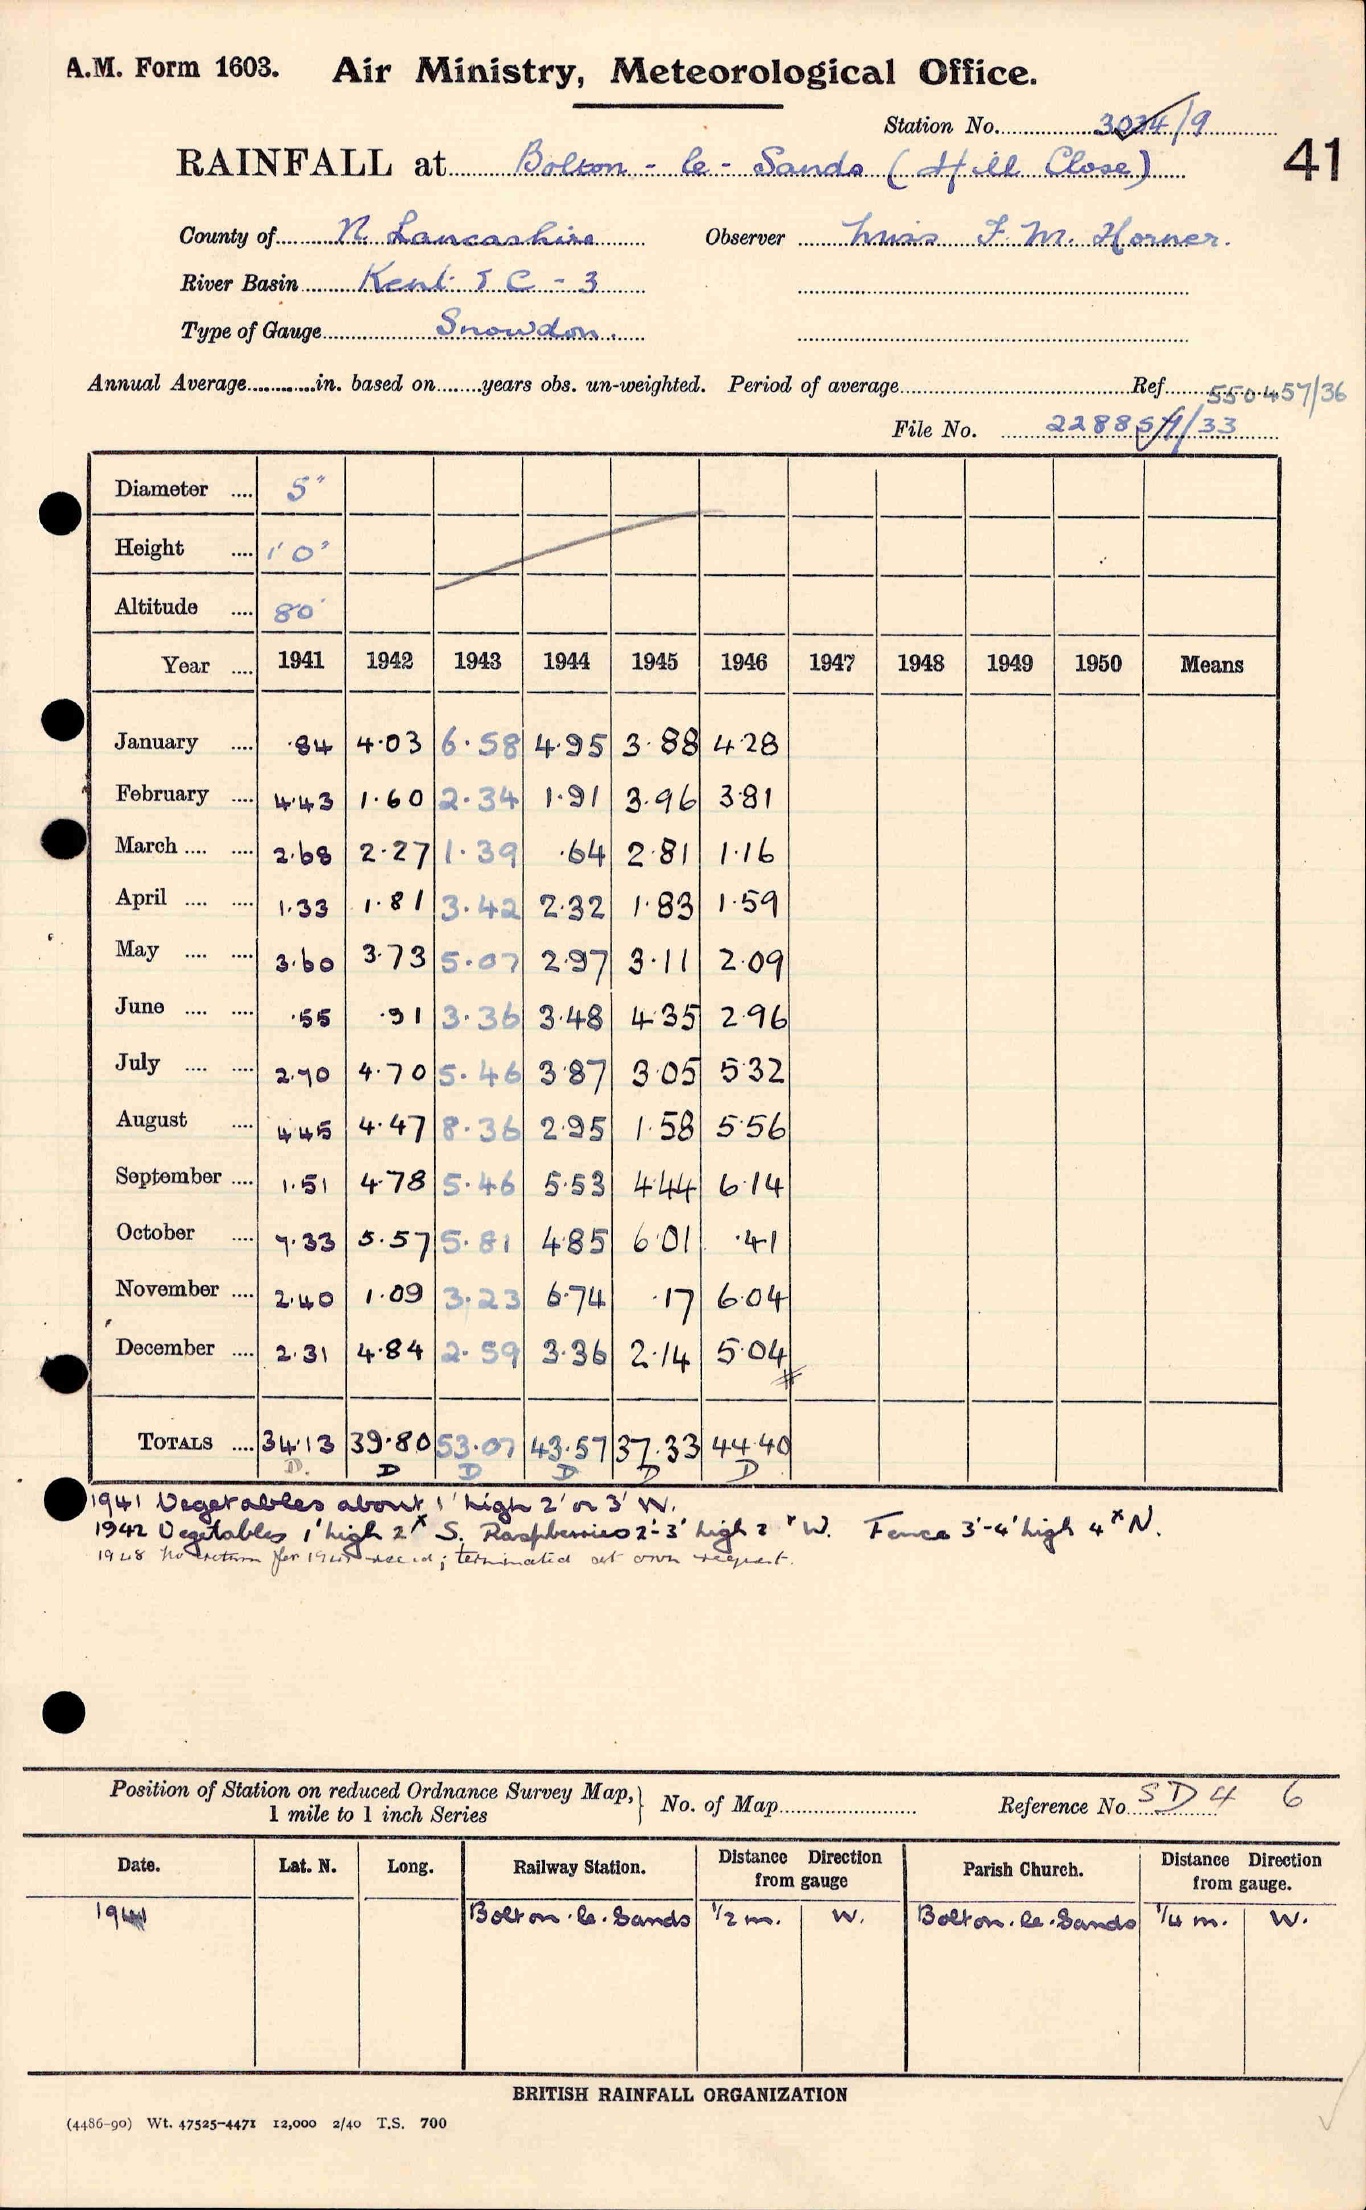 A.M. Form 1603. Air Ministry, Meteorological Office.
Station No. 3034/9
RAINFALL at Bolton-le-Sands (Hill Close) 41
County of N. Lancashire Observer Miss F. M. Horner.
River Basin Kent & C - 3
Type of Gauge Snowdon.
Annual Average............in. based on........years obs. un-weighted. Period of average Ref 550457/36
File No. 228857/33
Diameter .... 5"
Height .... 1' 0"
Altitude .... 80'
Year .... 1941 1942 1943 1944 1945 1946 1947 1948 1949 1950 Means
January .... ·84 4·03 6·58 4·95 3·88 4·28
February .... 4·43 1·60 2·34 1·91 3·96 3·81
March .... .... 2·68 2·27 1·39 ·64 2·81 1·16
April .... .... 1·33 1·81 3·42 2·32 1·83 1·59
May .... .... 3·60 3·73 5·07 2·97 3·11 2·09
June .... .... ·55 ·91 3·36 3·48 4·35 2·96
July .... .... 2·70 4·70 5·46 3·87 3·05 5·32
August .... 4·45 4·47 8·36 2·95 1·58 5·56
September .... 1·51 4·78 5·46 5·53 4·44 6·14
October .... 7·33 5·57 5·81 4·85 6·01 ·41
November .... 2·40 1·09 3·23 6·74 ·17 6·04
December .... 2·31 4·84 2·59 3·36 2·14 5·04
TOTALS .... 34·13 39·80 53·07 43·57 37·33 44·40
D. D D D D D
1941 Vegetables about 1' high 2' or 3' W.
1942 Vegetables 1' high 2x S. Raspberries 2'-3' high 2x W. Fence 3'-4' high 4x N.
1948 No return for 1947 rec'd; terminated at own request.
Position of Station on reduced Ordnance Survey Map, 1 mile to 1 inch Series } No. of Map Reference No. SD 4 6
Date. Lat. N. Long. Railway Station. Distance Direction from gauge Parish Church. Distance Direction from gauge.
1941 Bolton-le-Sands 1/2 m. W. Bolton-le-Sands 1/4 m. W.
BRITISH RAINFALL ORGANIZATION
(4486-90) Wt. 47525-4471 12,000 2/40 T.S. 700